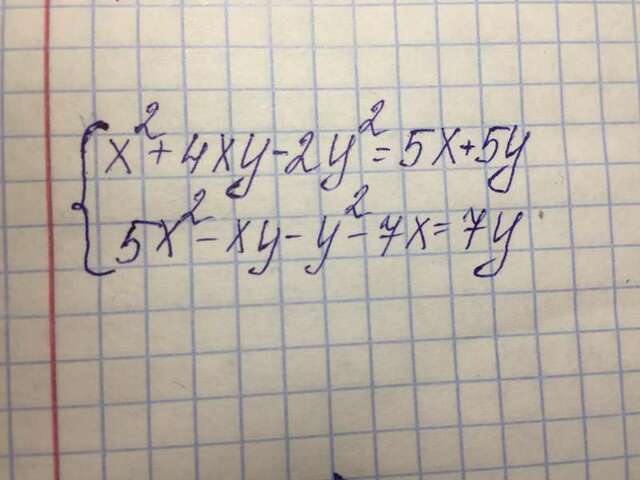 x² + 4xy - 2y² = 5x + 5y
5x² - xy - y² - 7x = 7y